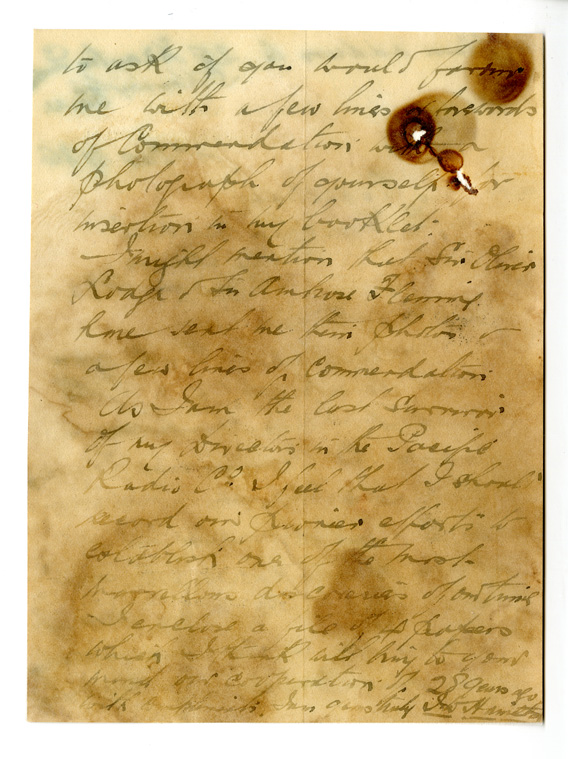 to ask if you would favour
me with a few lines words
of Commendation with a
photograph of yourself for
insertion in my booklet.
I might mention that Sir Oliver
Lodge & Sir Ambrose Fleming
have sent me their photos &
a few lines of commendation
As I am the last survivor
of my Directors in the Pacific
Radio Co. I feel that I should
record our pioneer efforts to
establish one of the most
marvellous discoveries of our time
I enclose a of papers
which I think will bring to your
mind our cooperation of 28 years ago
with I am